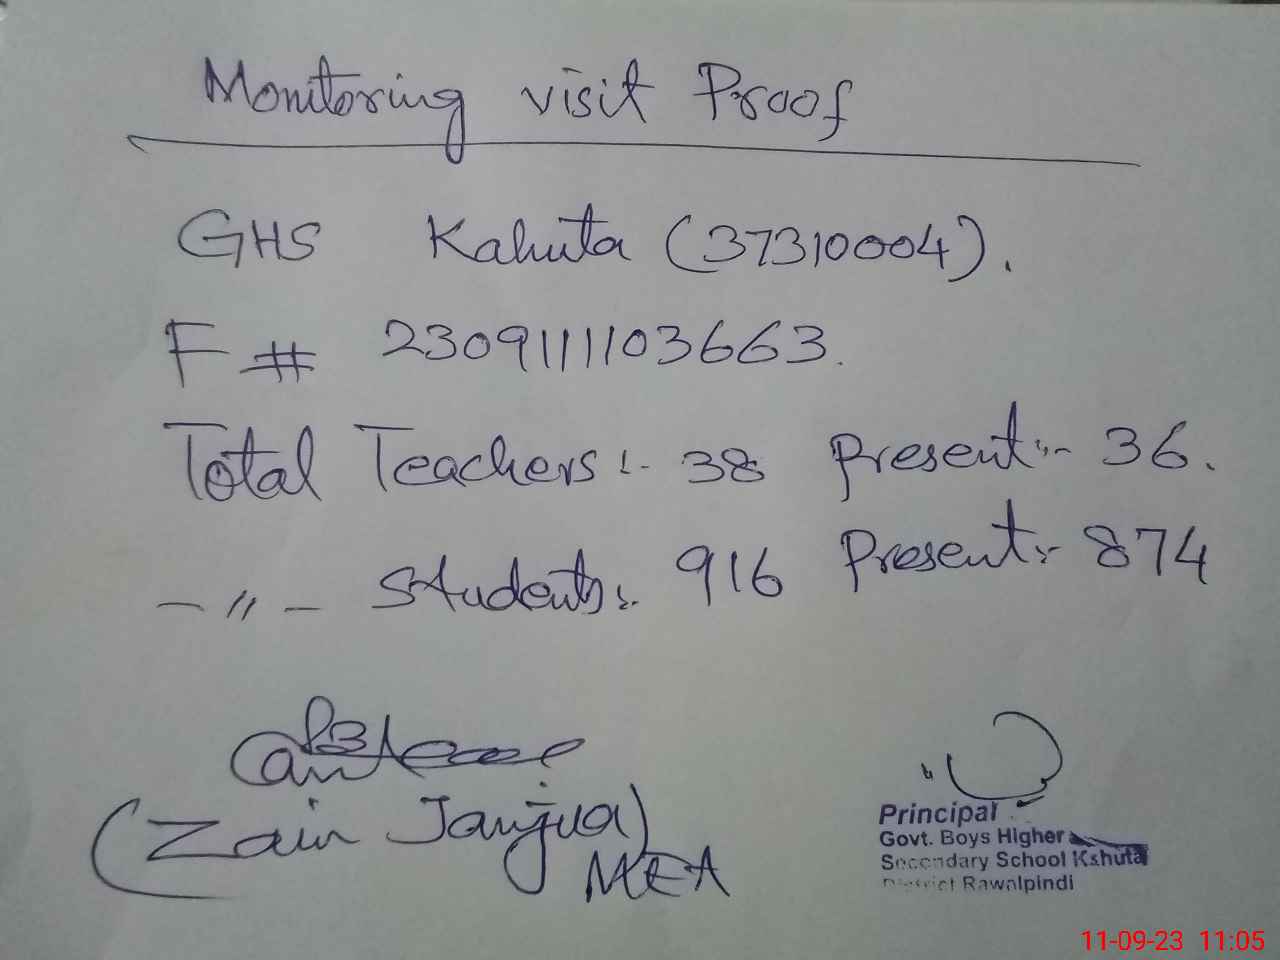 Monitoring visit Proof
GHS Kahuta (37310004).
F # 2309111103663.
Total Teachers :- 38 Present :- 36.
- 〃 - Students :- 916 Present :- 874
(Zain Janjua)
MEA
Principal
Govt. Boys Higher
Secondary School Kahuta
District Rawalpindi
11-09-23 11:05